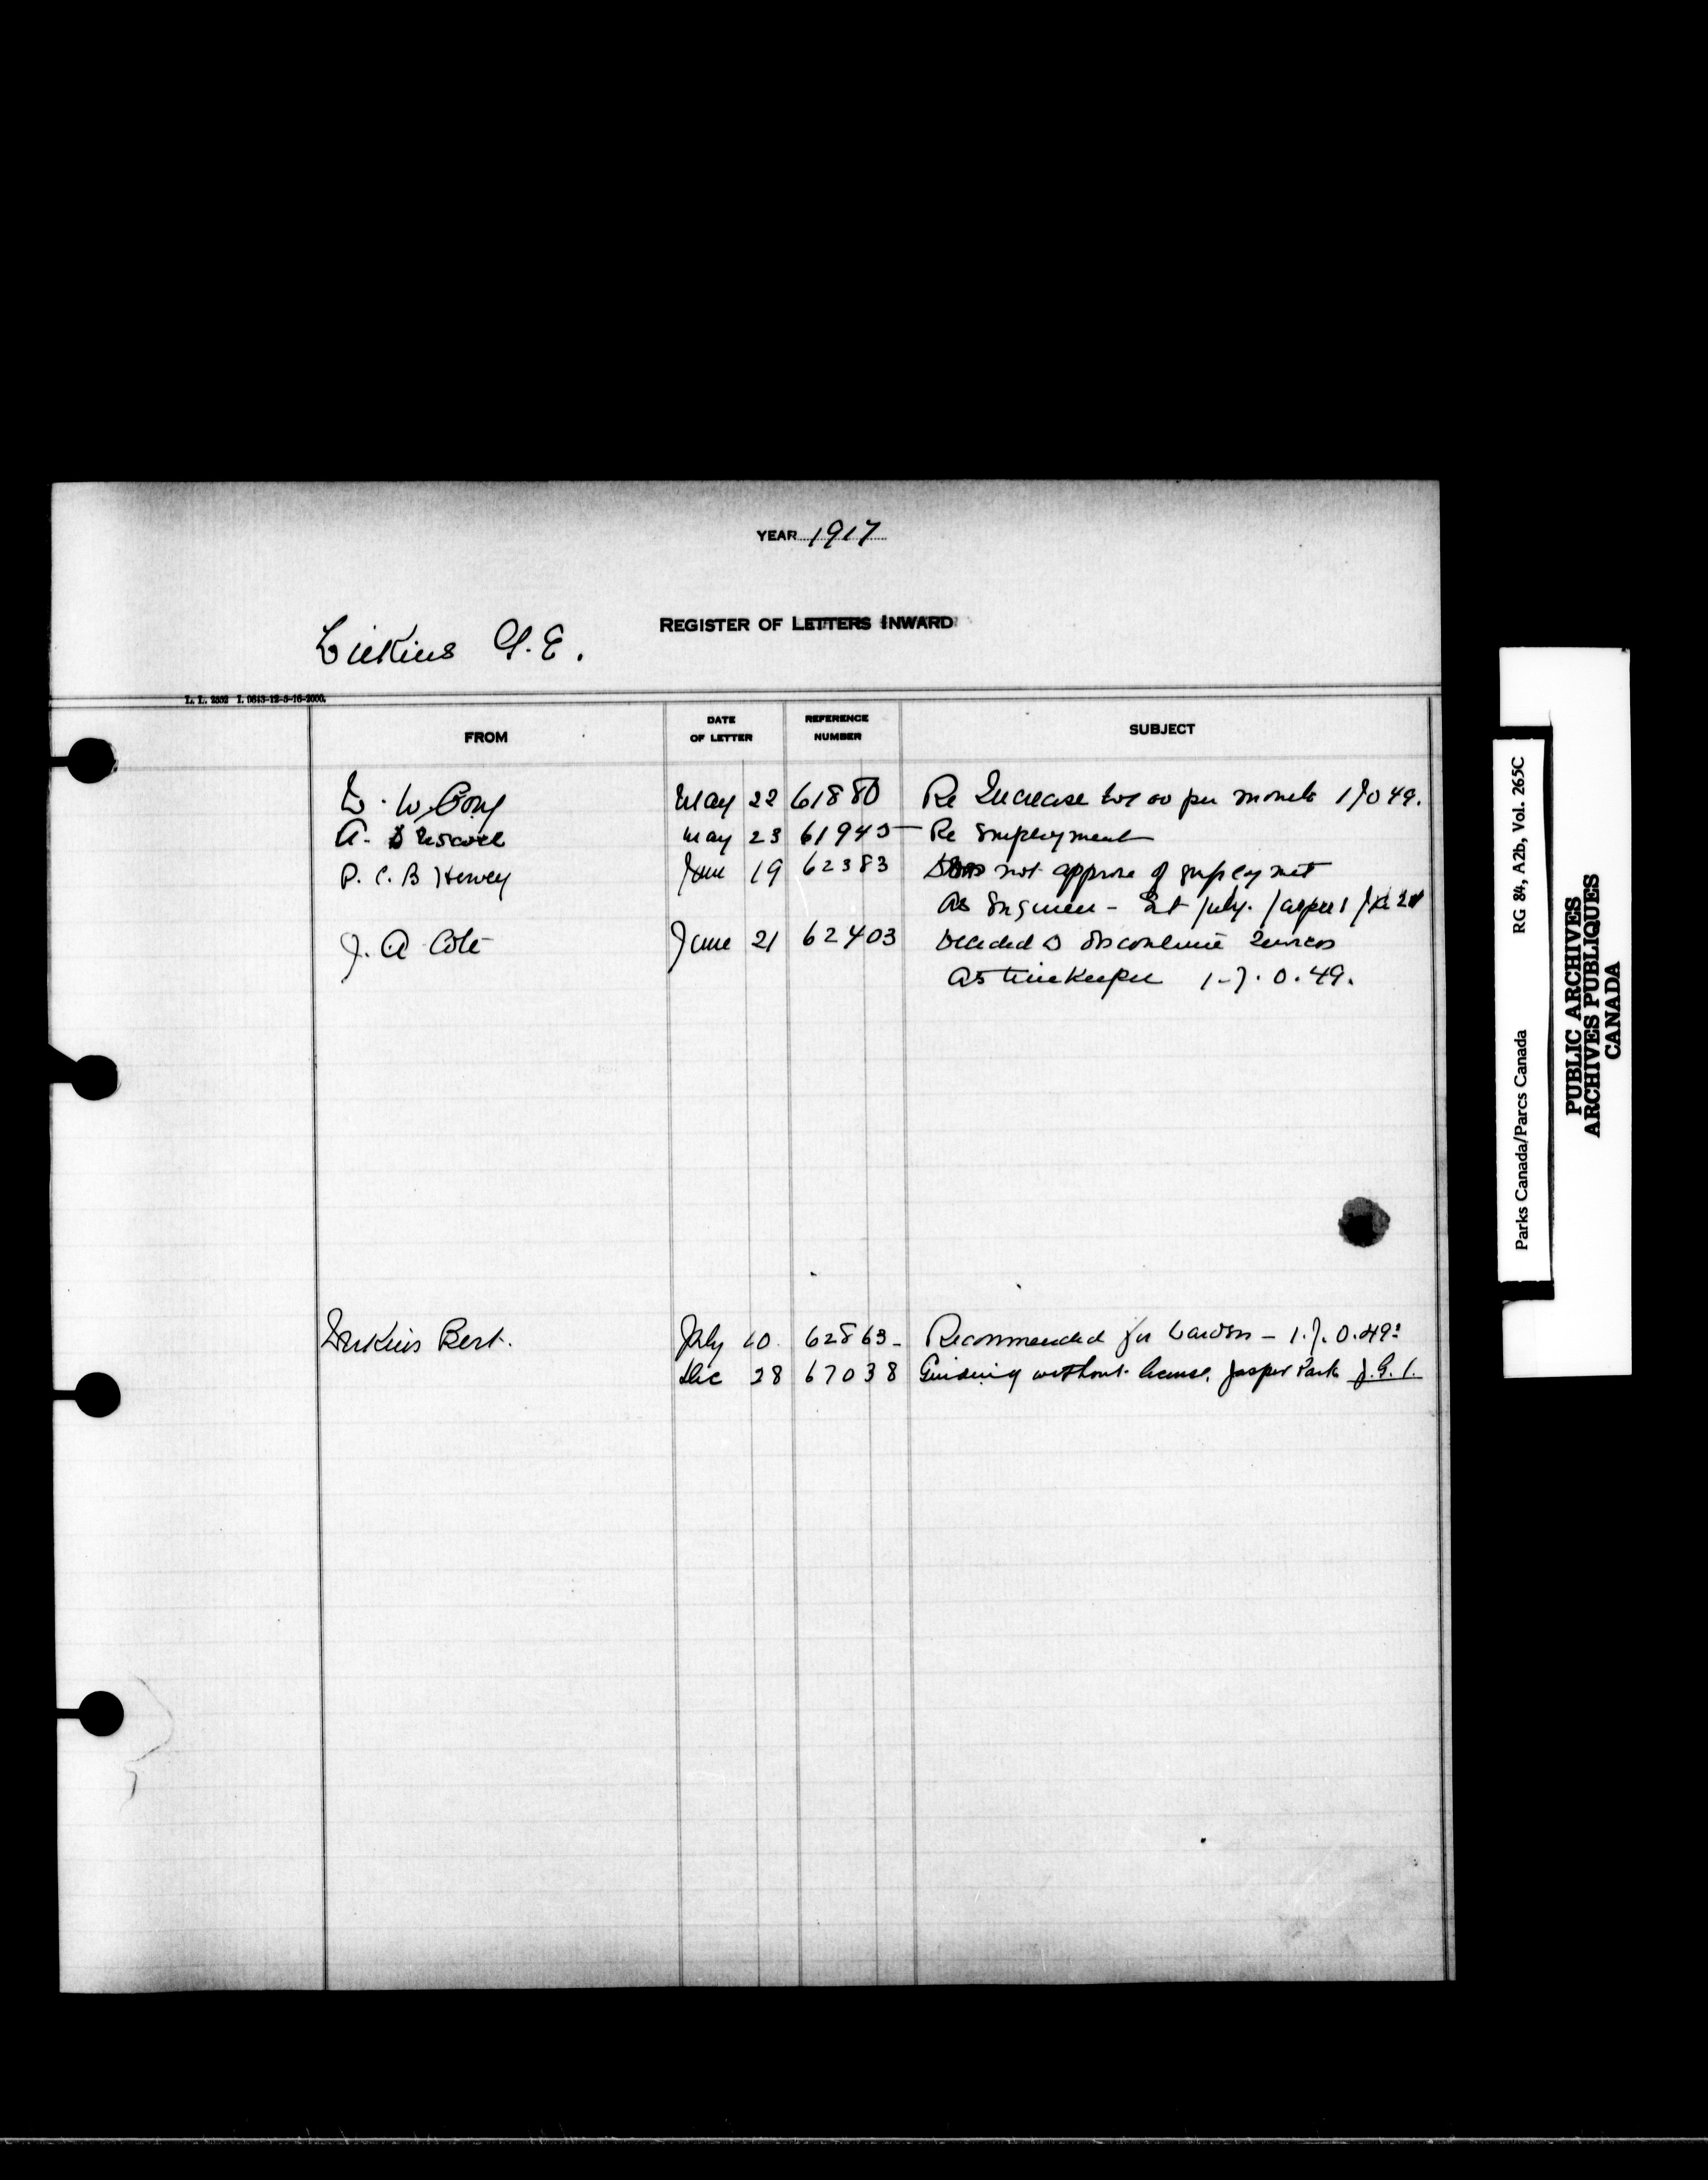 YEAR 1917
REGISTER OF LETTERS INWARD
G. E.
L. L. 2552 I. 0843-12-5-16-2000.
FROM
DATE OF LETTER
REFERENCE NUMBER
SUBJECT
W. May 22 61880 Re Increase per month
A. May 23 Re Employment
P. C. B Hervey June 19 62383 Does not approve of employmet
As July.
J. A Cote June 21 62403 Decided to discontinue Services
As timekeeper 1-7.0.49.
Bert. July 10 62863- Recommended for Warden - 1.7.0.49.
Dec 28 67038 Guiding without license, Jasper Park J.G.1.
Parks Canada/Parcs Canada RG 84, A2b, Vol. 265C
PUBLIC ARCHIVES
ARCHIVES PUBLIQUES
CANADA